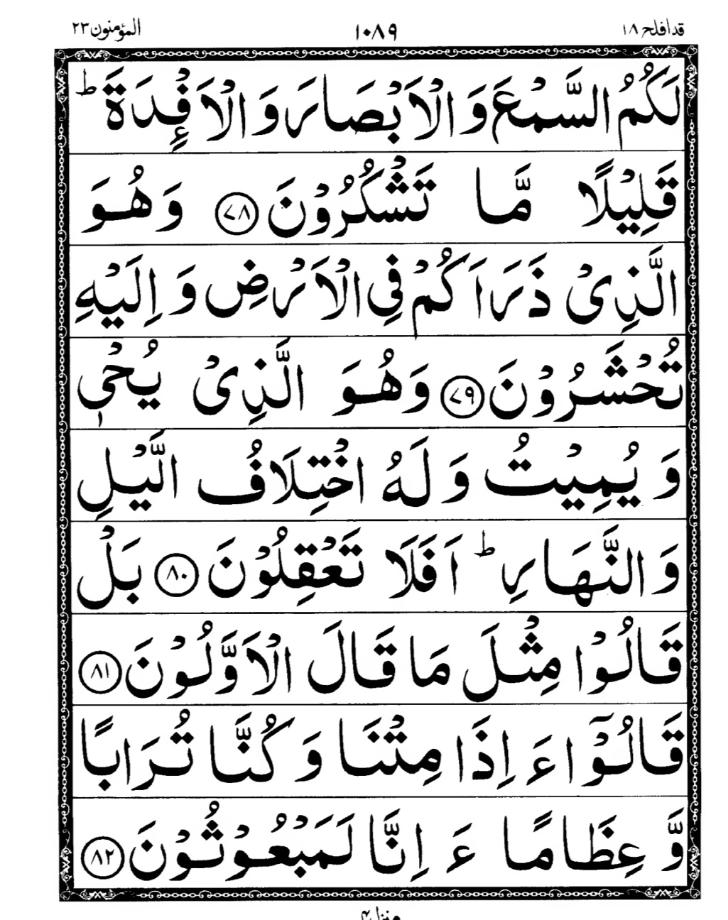 المؤمنون ٢٣ ١٠٨٩ قد افلح ١٨
لَكُمُ السَّمْعَ وَ الْاَبْصَارَ وَ الْاَفْـِٕدَةَ ؕ
قَلِیْلًا مَّا تَشْكُرُوْنَ ﴿۷۸﴾ وَ هُوَ
الَّذِیْ ذَرَاَكُمْ فِی الْاَرْضِ وَ اِلَیْهِ
تُحْشَرُوْنَ ﴿۷۹﴾ وَ هُوَ الَّذِیْ یُحْیٖ
وَ یُمِیْتُ وَ لَهُ اخْتِلَافُ الَّیْلِ
وَ النَّهَارِ ؕ اَفَلَا تَعْقِلُوْنَ ﴿۸۰﴾ بَلْ
قَالُوْا مِثْلَ مَا قَالَ الْاَوَّلُوْنَ ﴿۸۱﴾
قَالُوْۤا ءَ اِذَا مِتْنَا وَ كُنَّا تُرَابًا
وَّ عِظَامًا ءَ اِنَّا لَمَبْعُوْثُوْنَ ﴿۸۲﴾
منزل ۴